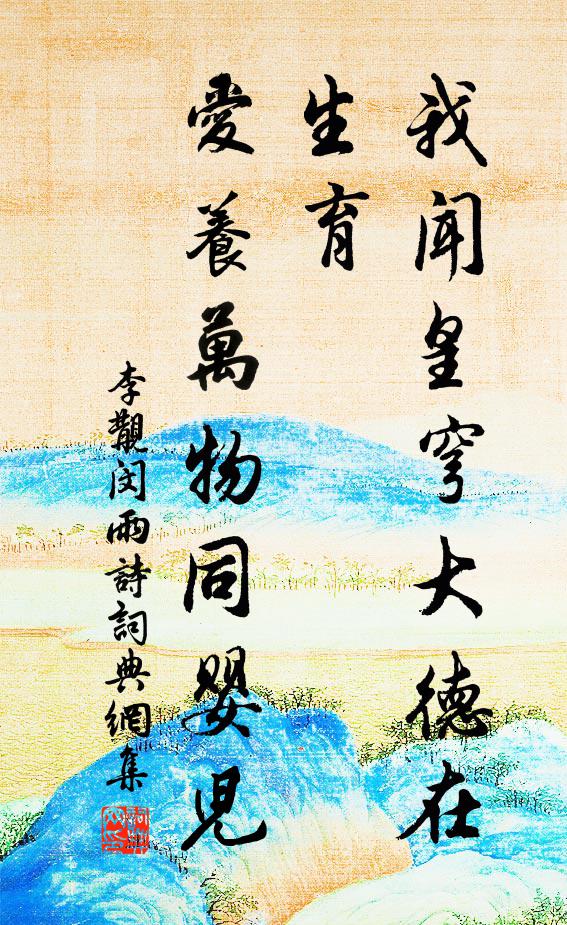 我聞皇穹大德在
生育
愛養萬物同嬰兒
李覯閔雨詩詞典網集